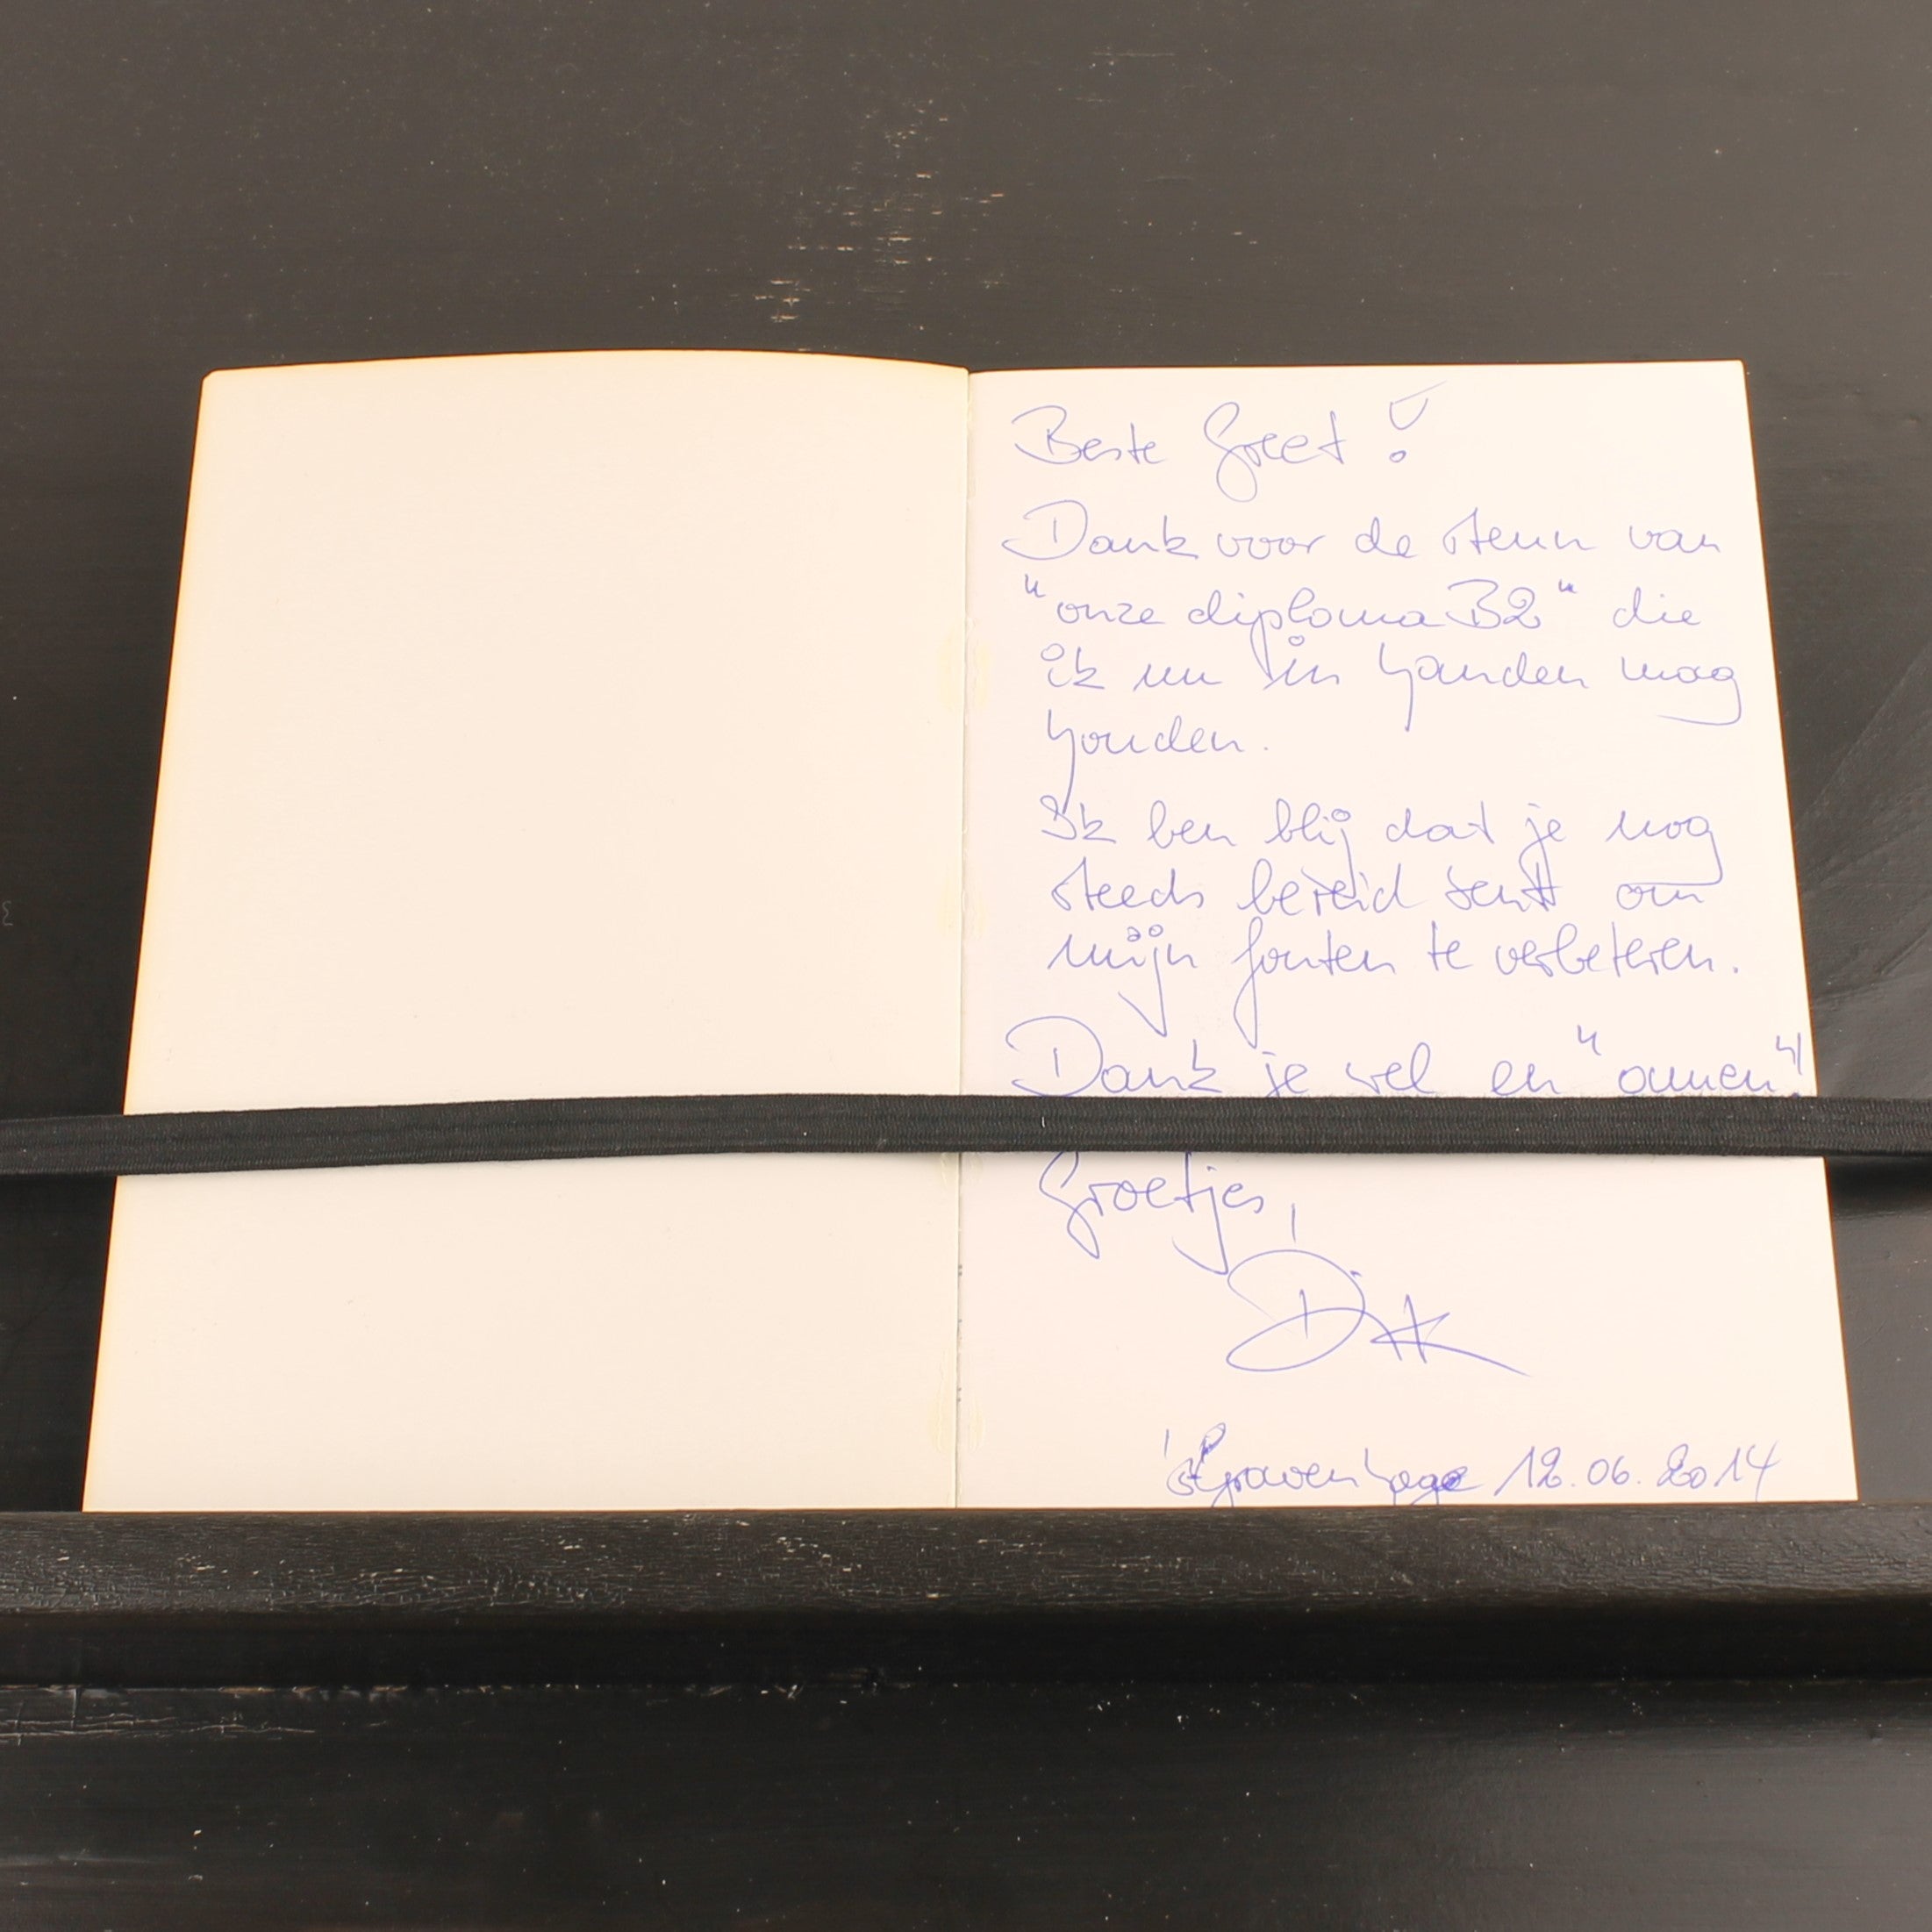 Beste Greet!
Dank voor de steun van
"onze diploma B2" die
ik nu in handen mag
houden.
Ik ben blij dat je nog
steeds bereid bent om
mijn fouten te verbeteren.
Dank je wel en "amen"!
Groetjes,
Dirk
'sGravenhage 12.06.2014